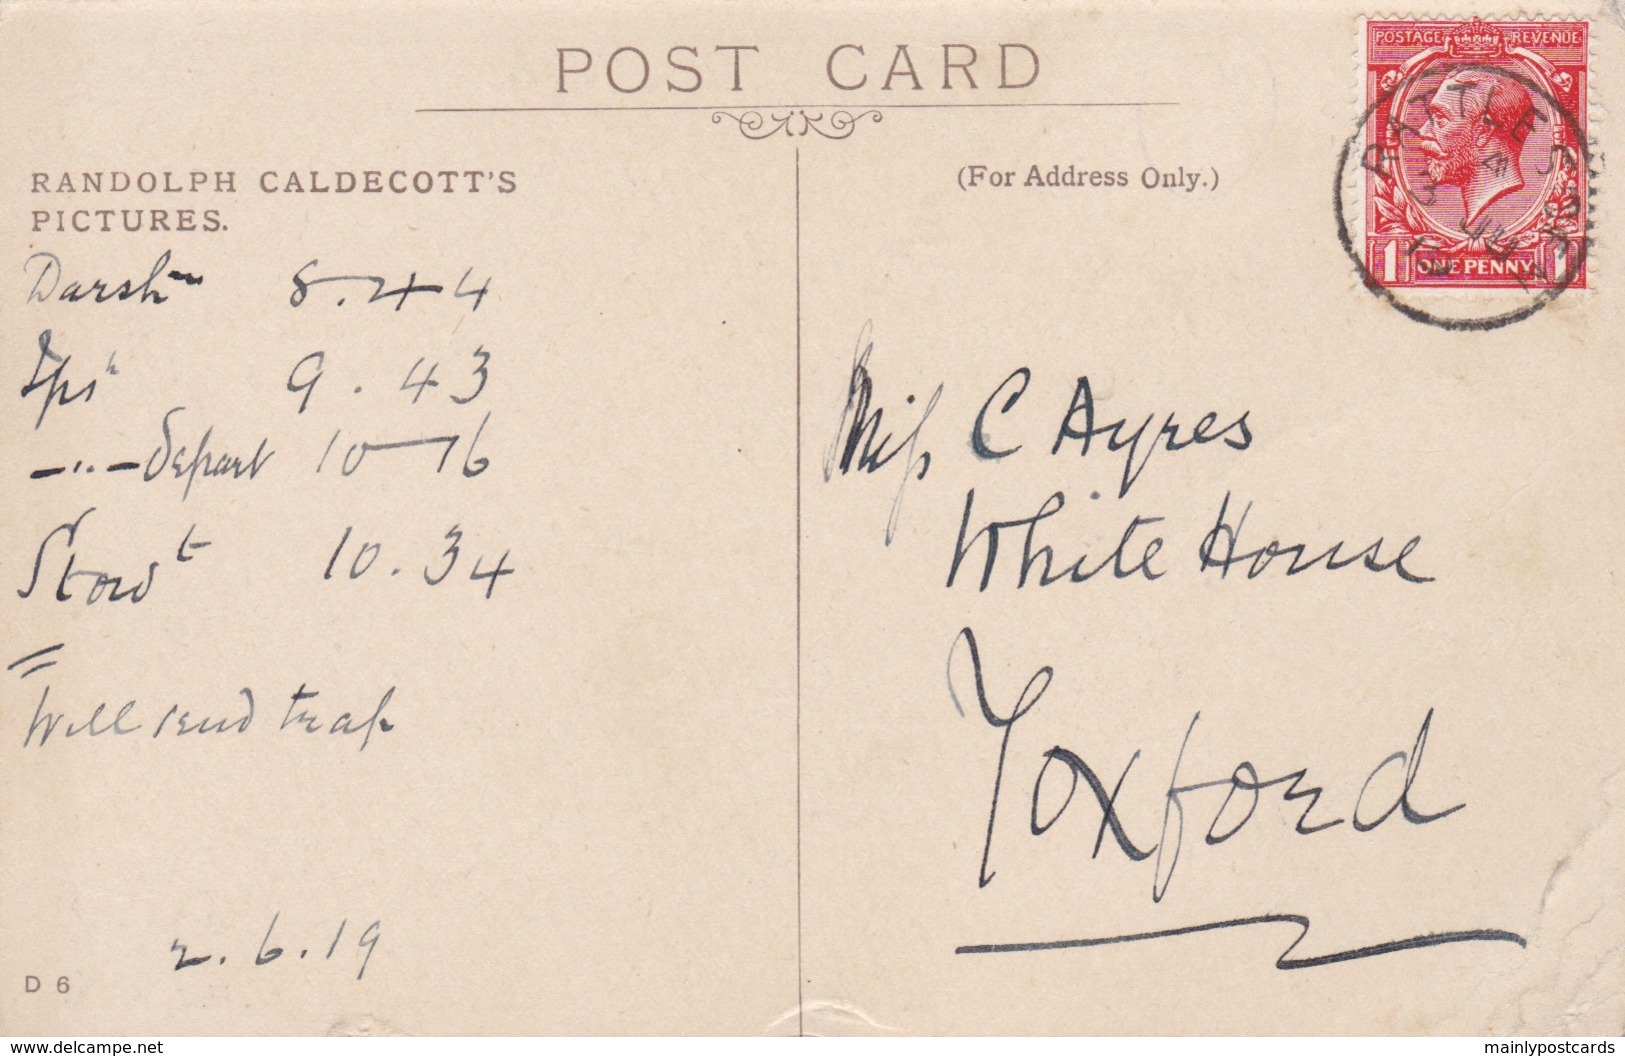 POST CARD
RANDOLPH CALDECOTT'S
PICTURES.
(For Address Only.)
POSTAGE REVENUE
1 ONE PENNY 1
RATTLESDEN
3 JU
19
Darshm 8.44
Ips h 9.43
—"— depart 10—16
Stow t 10.34
=
Will send trap
2.6.19
D 6
Miss C Ayres
White House
Yoxford
www.delcampe.net
mainlypostcards